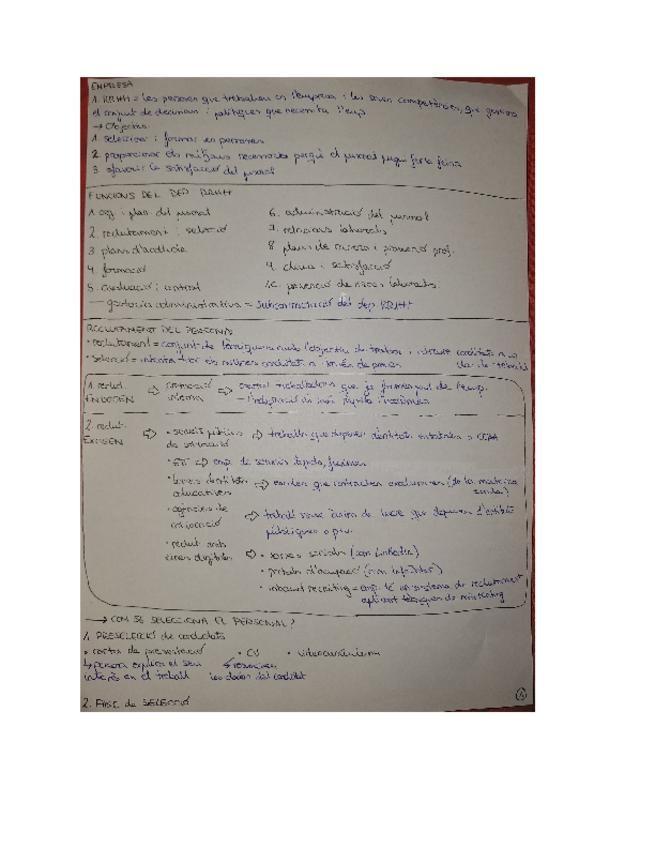 EMPRESA
1. RRHH = les persones que treballen en l'empresa i les seves competències, que gestiona
el conjunt de decisions i polítiques que necessita l'emp.
→ Objectius
1. seleccionar i formar les persones
2. proporcionar els mitjans necessaris perquè el personal pugui fer la feina
3. afavorir la satisfacció del personal
FUNCIONS DEL DEP RRHH
1. org. i plan. del personal
2. reclutament i selecció
3. plans d'acollida
4. formació
5. avaluació i control
6. administració del personal
7. relacions laborals
8. plans de carrera i promoció prof.
9. clima i satisfacció
10. prevenció de riscos laborals
— gestoria administrativa = subcontractació del dep RRHH
RECLUTAMENT DEL PERSONAL
• reclutament = conjunt de tècniques amb l'objectiu de trobar i candidats a un
• selecció = els millors candidats a través de proves lloc de treball
1. reclut. ENDOGEN ⇨ promoció interna ⇨ treballadors que ja formen part de l'emp.
2. reclut. EXOGEN ⇨ • serveis públics de col·locació ⇨ treballs que depenen d'entitats estatals o CCAA
• ETT ⇨ emp. de serveis
• borses d'entitats educatives ⇨ que contracten
• agències de col·locació ⇨ treball sense ànim de lucre que depenen d'entitats
públiques o priv.
• reclut. amb eines digitals ⇨ • xarxes socials (com Linkedin)
• portals d'ocupació (com InfoJobs)
• inbound recruiting = emp. té un sistema de reclutament
aplicant tècniques de màrqueting
→ COM SE SELECCIONA EL PERSONAL?
1. PRESELECCIÓ de candidats
• carta de presentació • CV • videocurrículum
↳ persona explica el seu
interès en el treball les dades del candidat
2. FASE de SELECCIÓ